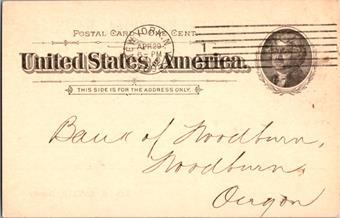 POSTAL CARD ONE CENT.
NEW YORK, N.Y.
APR 29
6-PM
1
United States of America.
THIS SIDE IS FOR THE ADDRESS ONLY.
Bank of Woodburn,
Woodburn,
Oregon